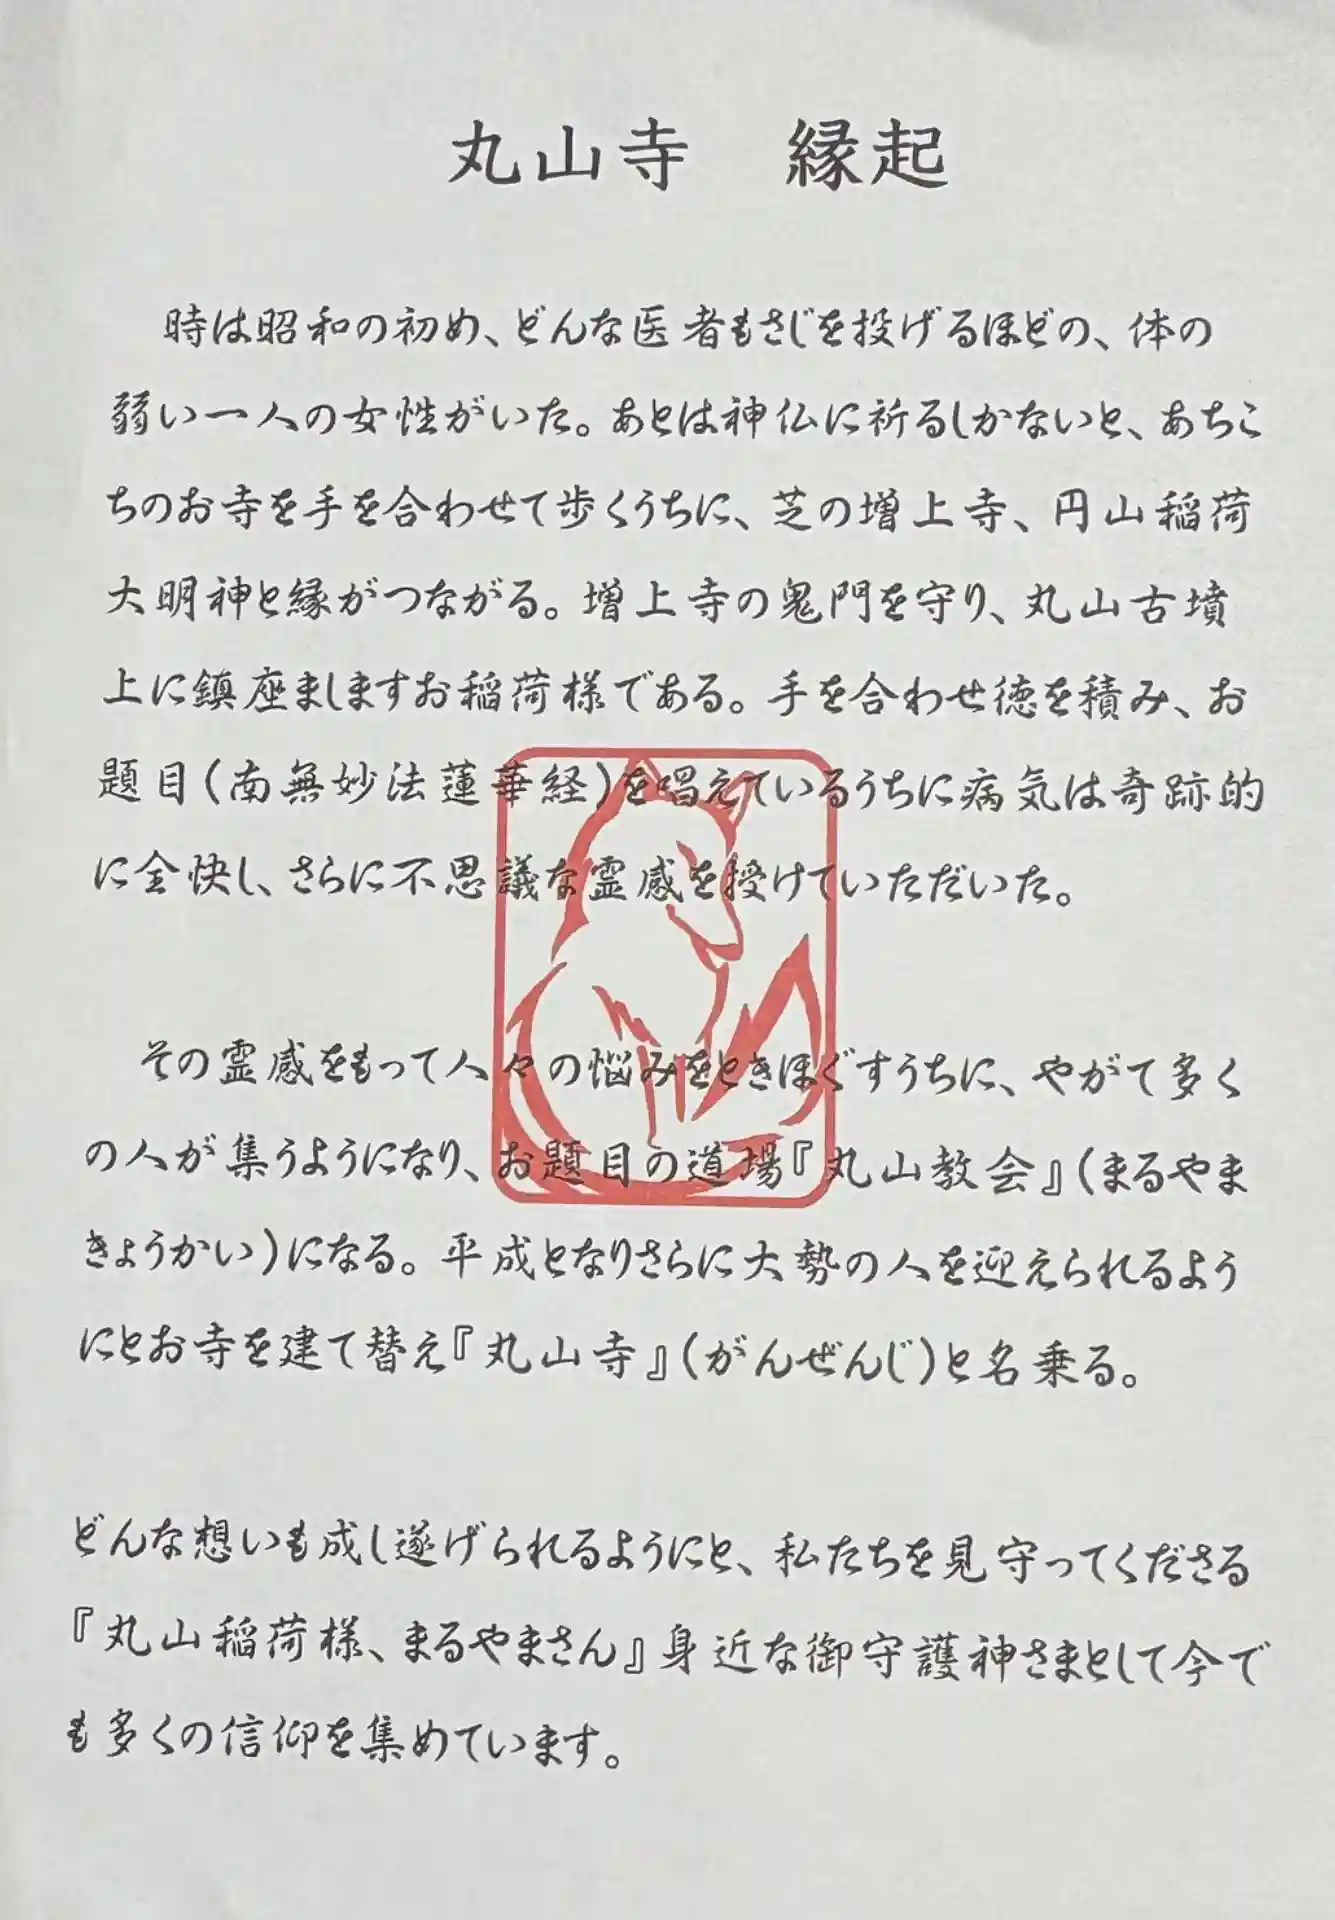 丸山寺　縁起
時は昭和の初め、どんな医者もさじを投げるほどの、体の
弱い一人の女性がいた。あとは神仏に祈るしかないと、あちこ
ちのお寺を手を合わせて歩くうちに、芝の増上寺、円山稲荷
大明神と縁がつながる。増上寺の鬼門を守り、丸山古墳
上に鎮座ましますお稲荷様である。手を合わせ徳を積み、お
題目(南無妙法蓮華経)を唱えているうちに病気は奇跡的
に全快し、さらに不思議な霊感を授けていただいた。
その霊感をもって人々の悩みをときほぐすうちに、やがて多く
の人が集うようになり、お題目の道場『丸山教会』(まるやま
きょうかい)になる。平成となりさらに大勢の人を迎えられるよう
にとお寺を建て替え『丸山寺』(がんぜんじ)と名乗る。
どんな想いも成し遂げられるようにと、私たちを見守ってくださる
『丸山稲荷様、まるやまさん』身近な御守護神さまとして今で
も多くの信仰を集めています。